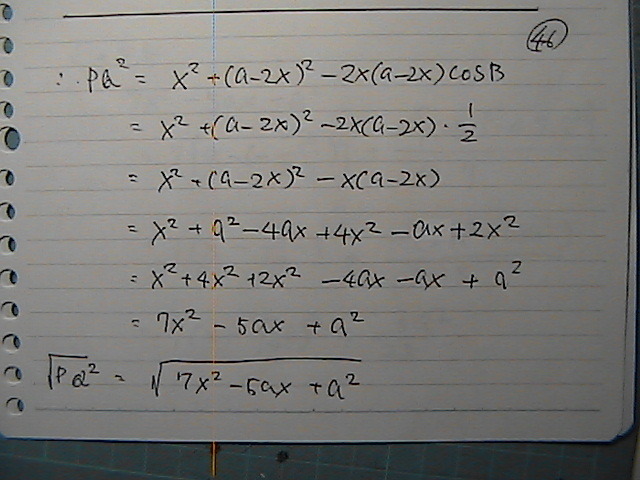 46
∴ PQ² = x² + (a-2x)² - 2x(a-2x) cosB
= x² + (a-2x)² - 2x(a-2x) · 1/2
= x² + (a-2x)² - x(a-2x)
= x² + a² - 4ax + 4x² - ax + 2x²
= x² + 4x² + 2x² - 4ax - ax + a²
= 7x² - 5ax + a²
√PQ² = √7x² - 5ax + a²